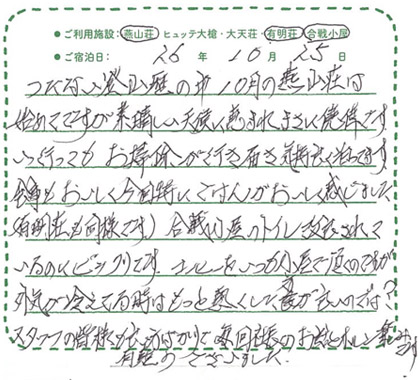 ●ご利用施設：燕山荘 ヒュッテ大槍・大天荘・有明荘 合戦小屋
●ご宿泊日： 26 年 10 月 25 日
つたない登山歴の中10月の燕山荘は
始めてですが素晴しい天候に恵まれまさに僥倖です
いつ行っても お掃除が行き届き気持良く
食事もおいしく今回特にごはんがおいしく感じました
(有明荘も同様です) 合戦小屋のトイレ改装されて
いるのにビックリです。コーヒーをいつも小屋で頂くのですが
外気が冷えてる時はもっと熱くして 方が良いのでは?
スタッフの皆様も良い方ばかりで 毎回
有難うございました。